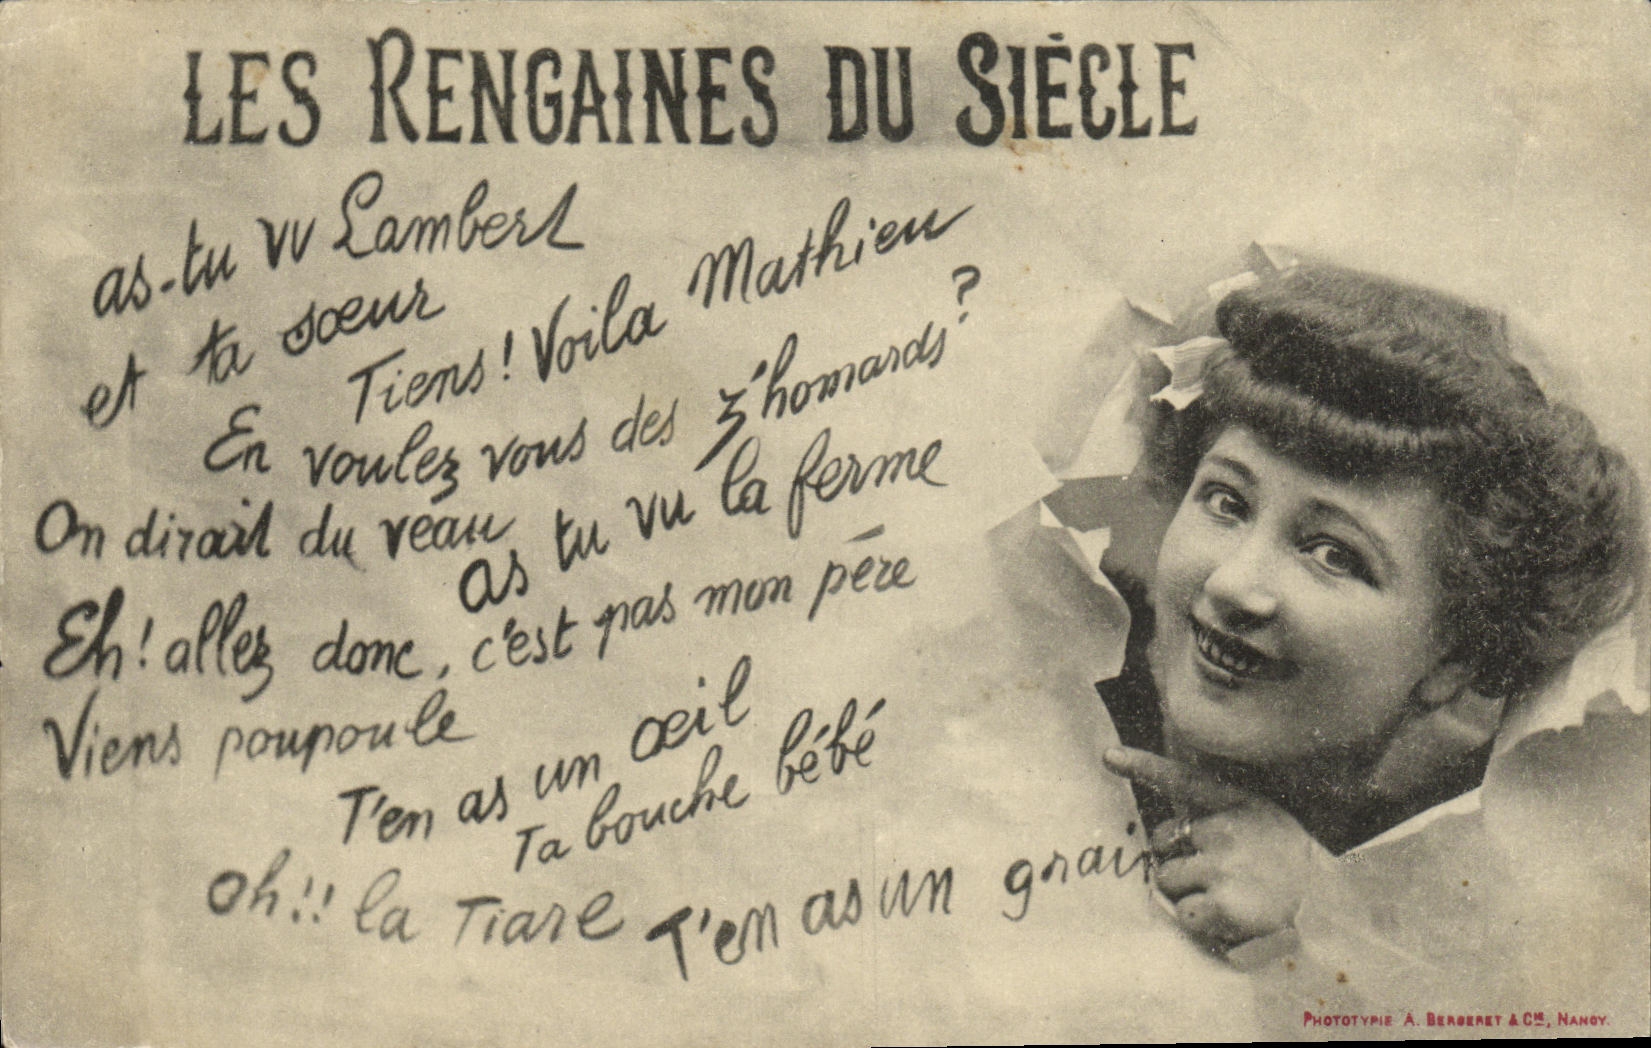 LES RENGAINES DU SIÈCLE
as-tu vv Lambert
et ta sœur
Tiens! Voila Mathieu
En voulez vous des z'homards?
On dirait du veau
as tu vu la ferme
Eh! allez donc, c'est pas mon pére
Viens poupoule
T'en as un œil
Ta bouche bébé
Oh!! la Tiare
T'en as un grain
PHOTOTYPIE A. BERGERET & CIE, NANCY.